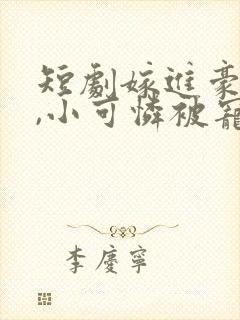 短劇嫁進豪
,小可憐被寵
李慶寧